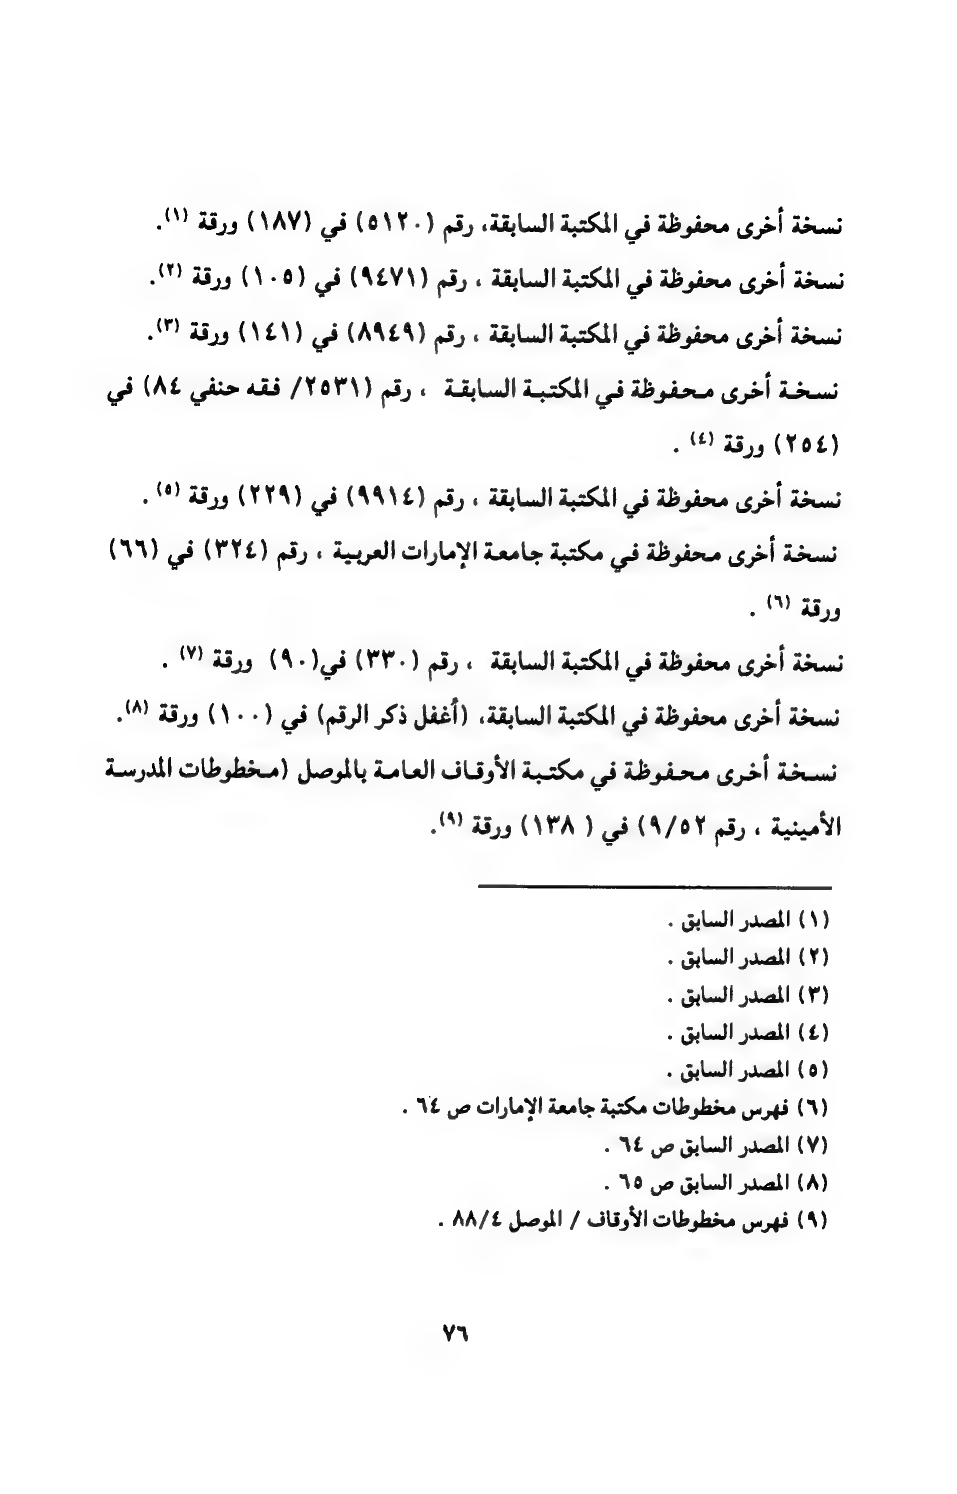 نسخة أخرى محفوظة في المكتبة السابقة، رقم (٥١٢٠) في (١٨٧) ورقة (١).
نسخة أخرى محفوظة في المكتبة السابقة ، رقم (٩٤٧١) في (١٠٥) ورقة (٢).
نسخة أخرى محفوظة في المكتبة السابقة ، رقم (٨٩٤٩) في (١٤١) ورقة (٣).
نسخة أخرى محفوظة في المكتبة السابقة ، رقم (٢٥٣١/ فقه حنفي ٨٤) في
(٢٥٤) ورقة (٤) .
نسخة أخرى محفوظة في المكتبة السابقة ، رقم (٩٩١٤) في (٢٢٩) ورقة (٥) .
نسخة أخرى محفوظة في مكتبة جامعة الإمارات العربية ، رقم (٣٢٤) في (٦٦)
ورقة (٦) .
نسخة أخرى محفوظة في المكتبة السابقة ، رقم (٣٣٠) في(٩٠) ورقة (٧) .
نسخة أخرى محفوظة في المكتبة السابقة، (أغفل ذكر الرقم) في (١٠٠) ورقة (٨).
نسخة أخرى محفوظة في مكتبة الأوقاف العامة بالموصل (مخطوطات المدرسة
الأمينية ، رقم ٩/٥٢) في ( ١٣٨) ورقة (٩).
(١) المصدر السابق .
(٢) المصدر السابق .
(٣) المصدر السابق .
(٤) المصدر السابق .
(٥) المصدر السابق .
(٦) فهرس مخطوطات مكتبة جامعة الإمارات ص ٦٤ .
(٧) المصدر السابق ص ٦٤ .
(٨) المصدر السابق ص ٦٥ .
(٩) فهرس مخطوطات الأوقاف / الموصل ٨٨/٤ .
٧٦